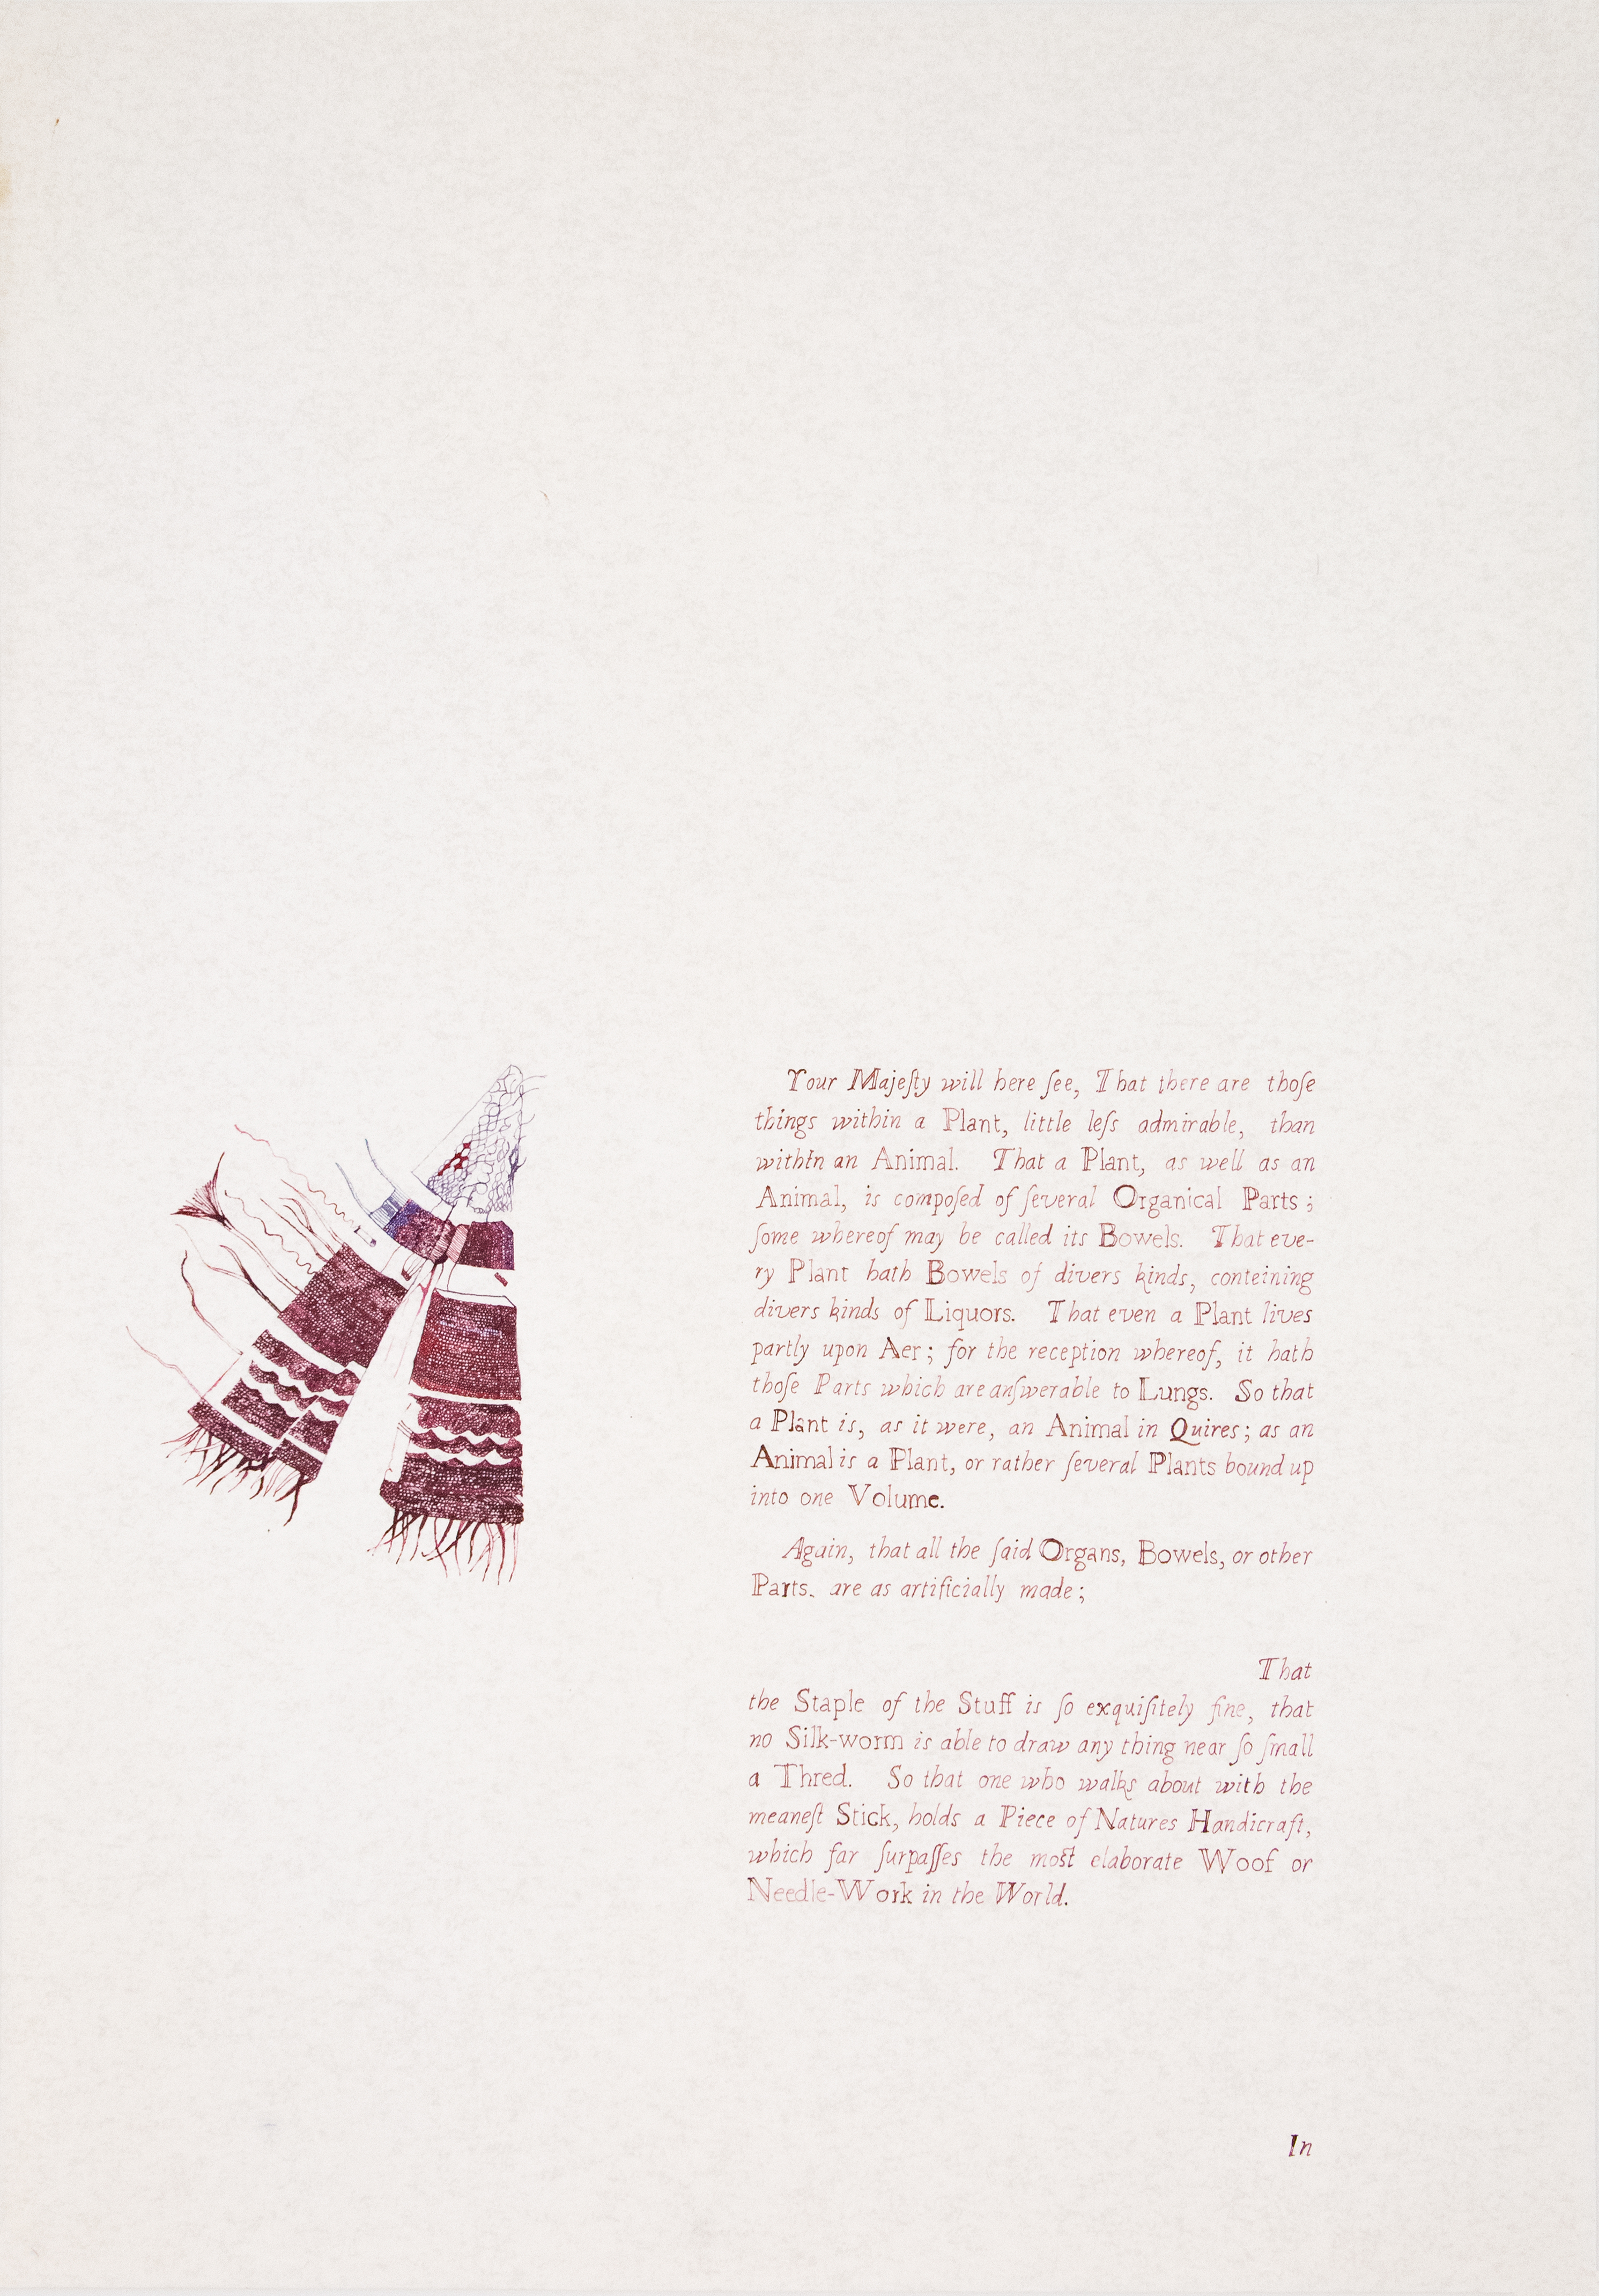 Your Majeſty will here ſee, That there are thoſe
things within a Plant, little leſs admirable, than
within an Animal. That a Plant, as well as an
Animal, is compoſed of ſeveral Organical Parts;
ſome whereof may be called its Bowels. That eve-
ry Plant hath Bowels of divers kinds, conteining
divers kinds of Liquors. That even a Plant lives
partly upon Aer; for the reception whereof, it hath
thoſe Parts which are anſwerable to Lungs. So that
a Plant is, as it were, an Animal in Quires; as an
Animal is a Plant, or rather ſeveral Plants bound up
into one Volume.
Again, that all the ſaid Organs, Bowels, or other
Parts. are as artificially made;
That
the Staple of the Stuff is ſo exquiſitely fine, that
no Silk-worm is able to draw any thing near ſo ſmall
a Thred. So that one who walks about with the
meaneſt Stick, holds a Piece of Natures Handicraft,
which far ſurpaſſes the most elaborate Woof or
Needle-Work in the World.
In